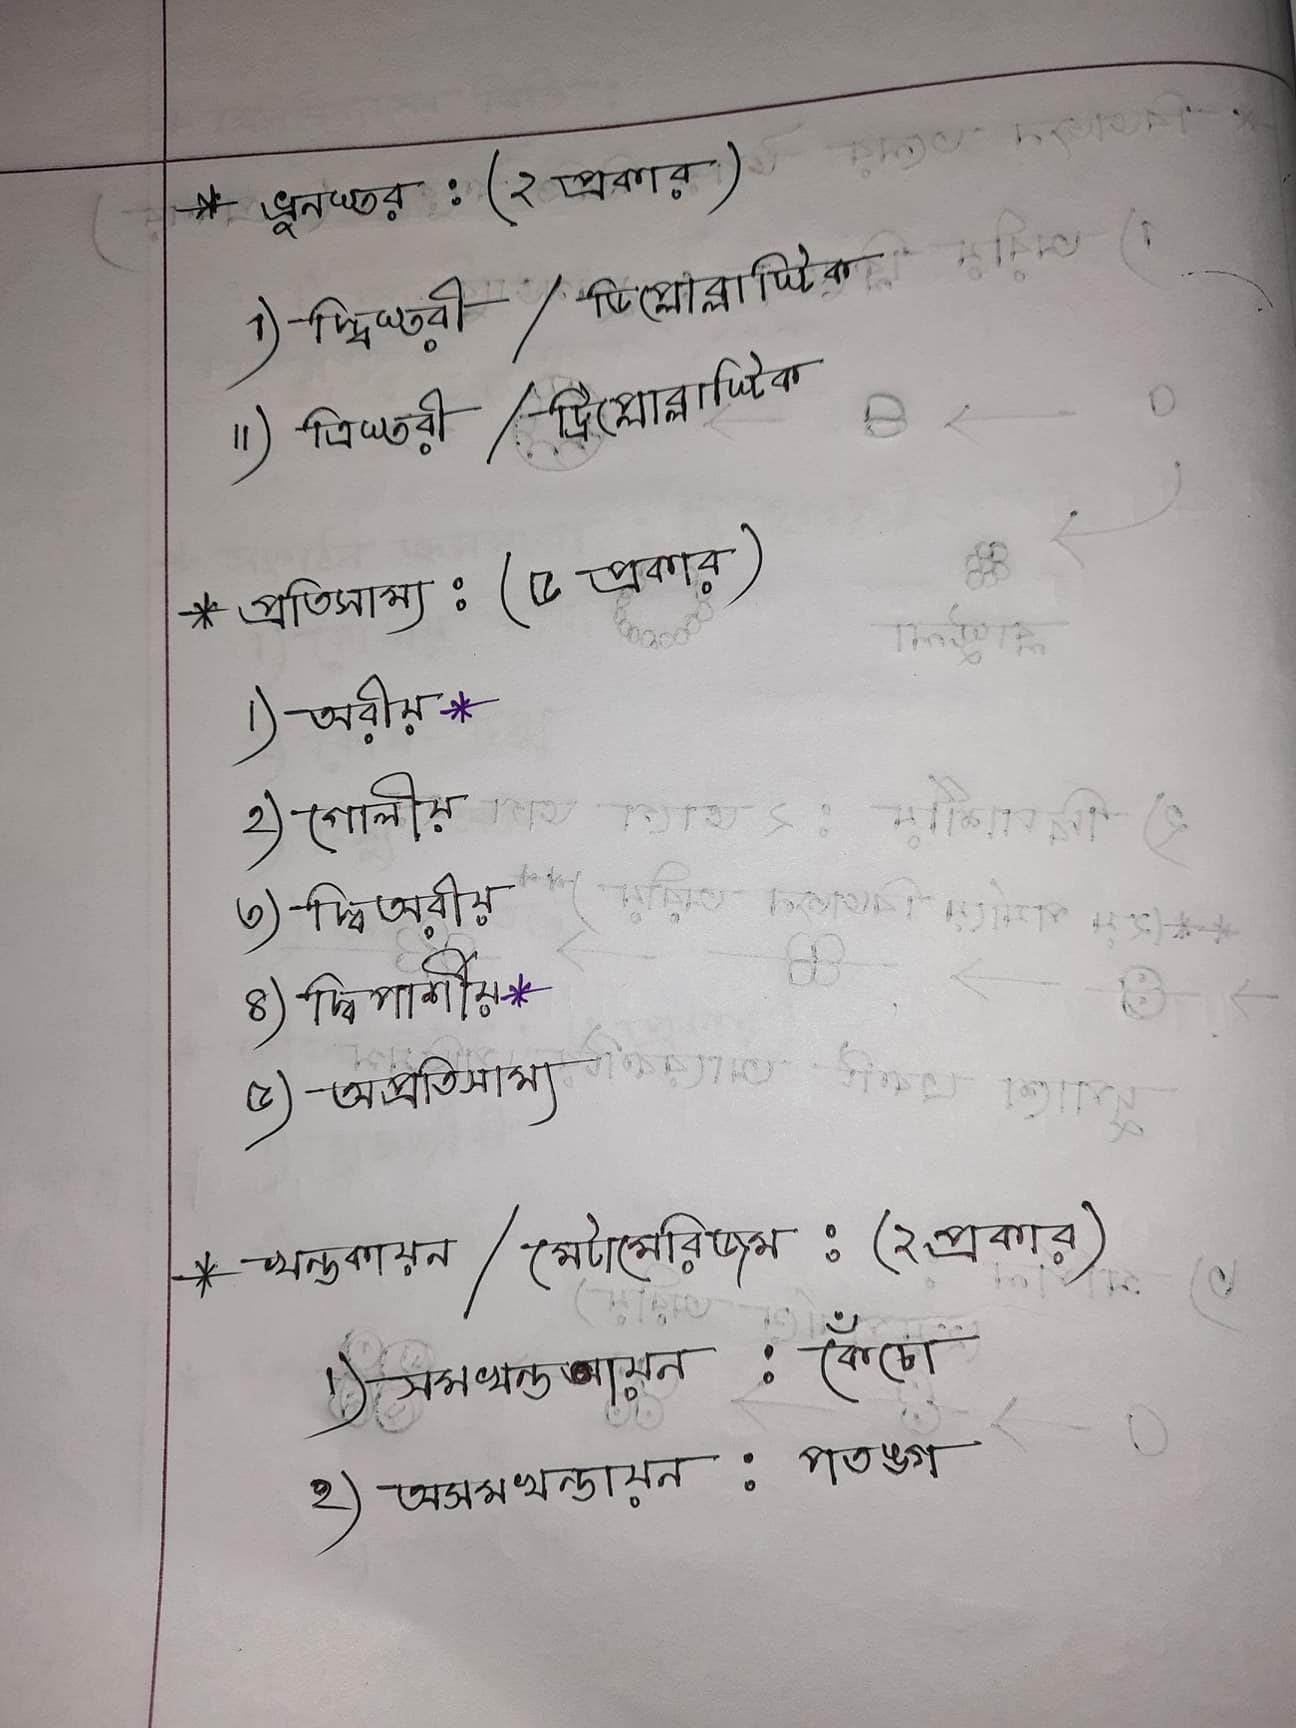 * ভ্রুনস্তর : (২ প্রকার)
i) দ্বিস্তরী / ডিপ্লোব্লাস্টিক
ii) ত্রিস্তরী / ট্রিপ্লোব্লাস্টিক
* প্রতিসাম্য : (৫ প্রকার)
১) অরীয় *
২) গোলীয়
৩) দ্বিঅরীয়
৪) দ্বিপার্শীয় *
৫) অপ্রতিসাম্য
* খন্ডকায়ন / মেটামেরিজম : (২ প্রকার)
১) সমখন্ডকায়ন : কেঁচো
২) অসমখন্ডায়ন : পতঙ্গ